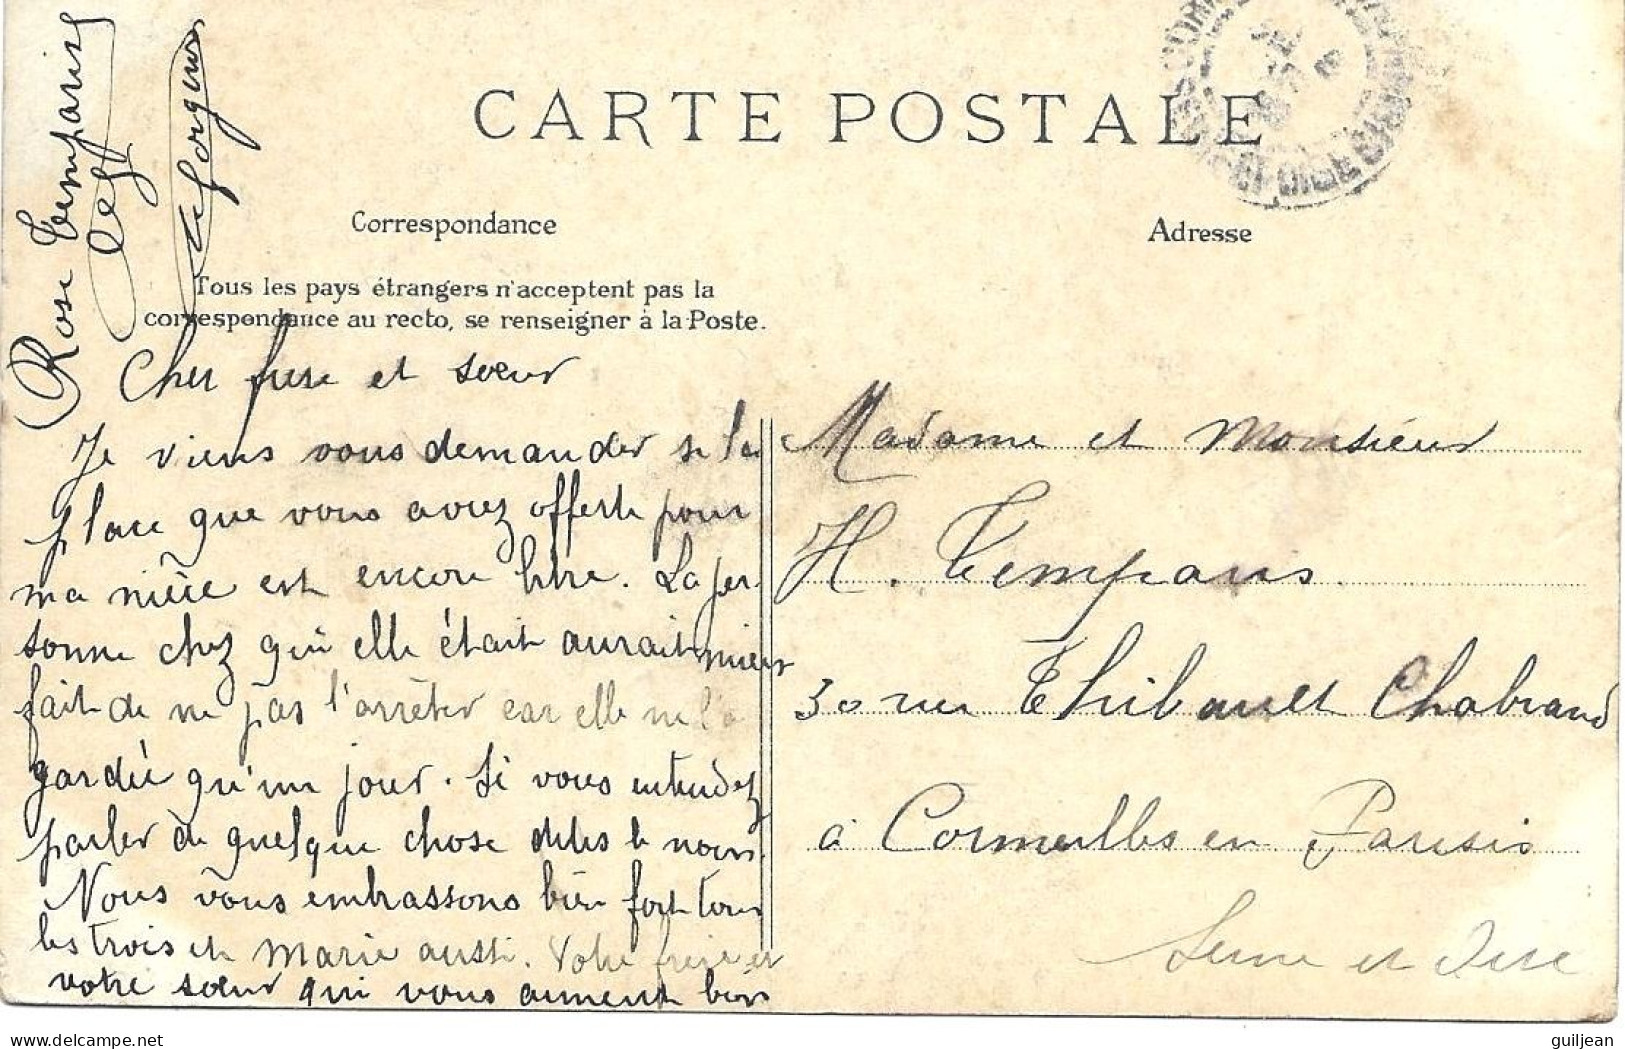 CARTE POSTALE
Correspondance
Adresse
Tous les pays étrangers n'acceptent pas la
correspondance au recto, se renseigner à la Poste.
Rose Tempani
Cher frere et sœur
Je viens vous demander si la
place que vous aviez offerte pour
ma nièce est encore libre. La per
sonne chez qui elle était aurait mieux
fait de ne pas l'arrêter car elle ne l'a
gardée qu'un jour. Si vous entendez
parler de quelque chose dites le nous.
Nous vous embrassons bien fort tous
les trois et Marie aussi. Votre frère et
votre sœur qui vous aiment bien
Madame et Monsieur
H. Tempans
30 rue Thibault Chabrand
à Cormeilles en Parisis
Seine et Oise
www.delcampe.net
guiljean